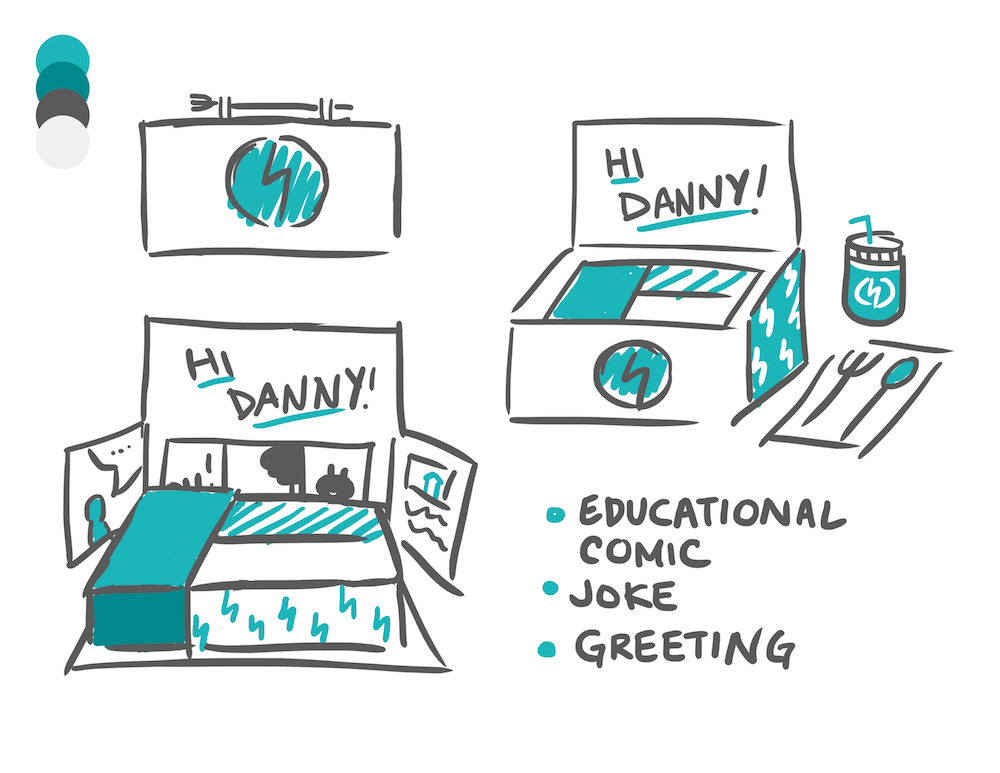 HI
DANNY!
HI
DANNY!
EDUCATIONAL
COMIC
JOKE
GREETING